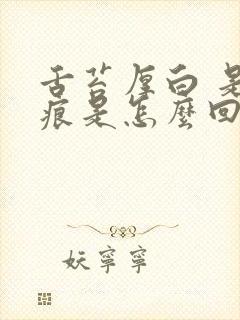 舌苔厚白 是
痕是怎麼回
妖寧寧